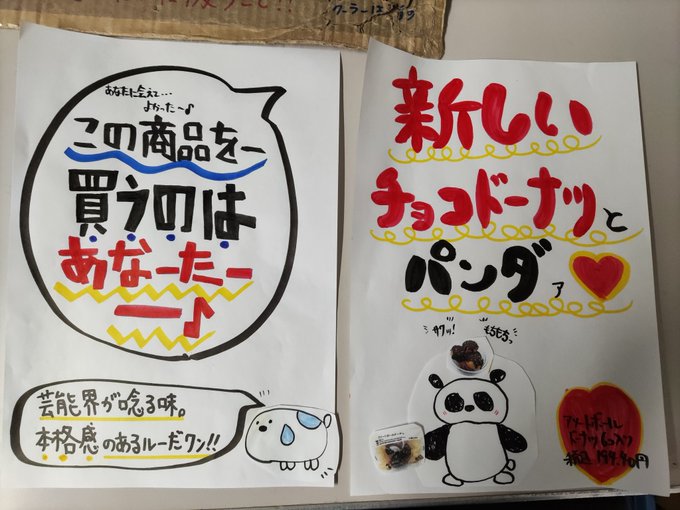 クーラーは
あなたに会えて…
よかった〜♪
この商品を一
買うのは
あなーたー
ー♪
芸能界が唸る味。
本格感のあるルーだワン!!
新しい
チョコドーナツと
パンダァ
サクッ!
もちもちっ
ドーナツ6コ入り
税込 199.90円